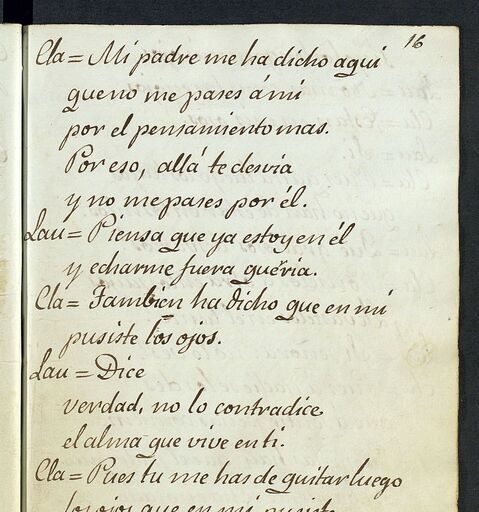 16
Cla= Mi padre me ha dicho aqui
que no me pases á mi
por el pensamiento mas.
Por eso, allá te desvia
y no me pases por él.
Lau= Piensa que ya estoy en él
y echarme fuera queria.
Cla= Tambien ha dicho que en mi
pusiste los ojos.
Lau= Dice
verdad, no lo contradice
el alma que vive en ti.
Cla= Pues tu me has de quitar luego
los ojos que en mi pusiste